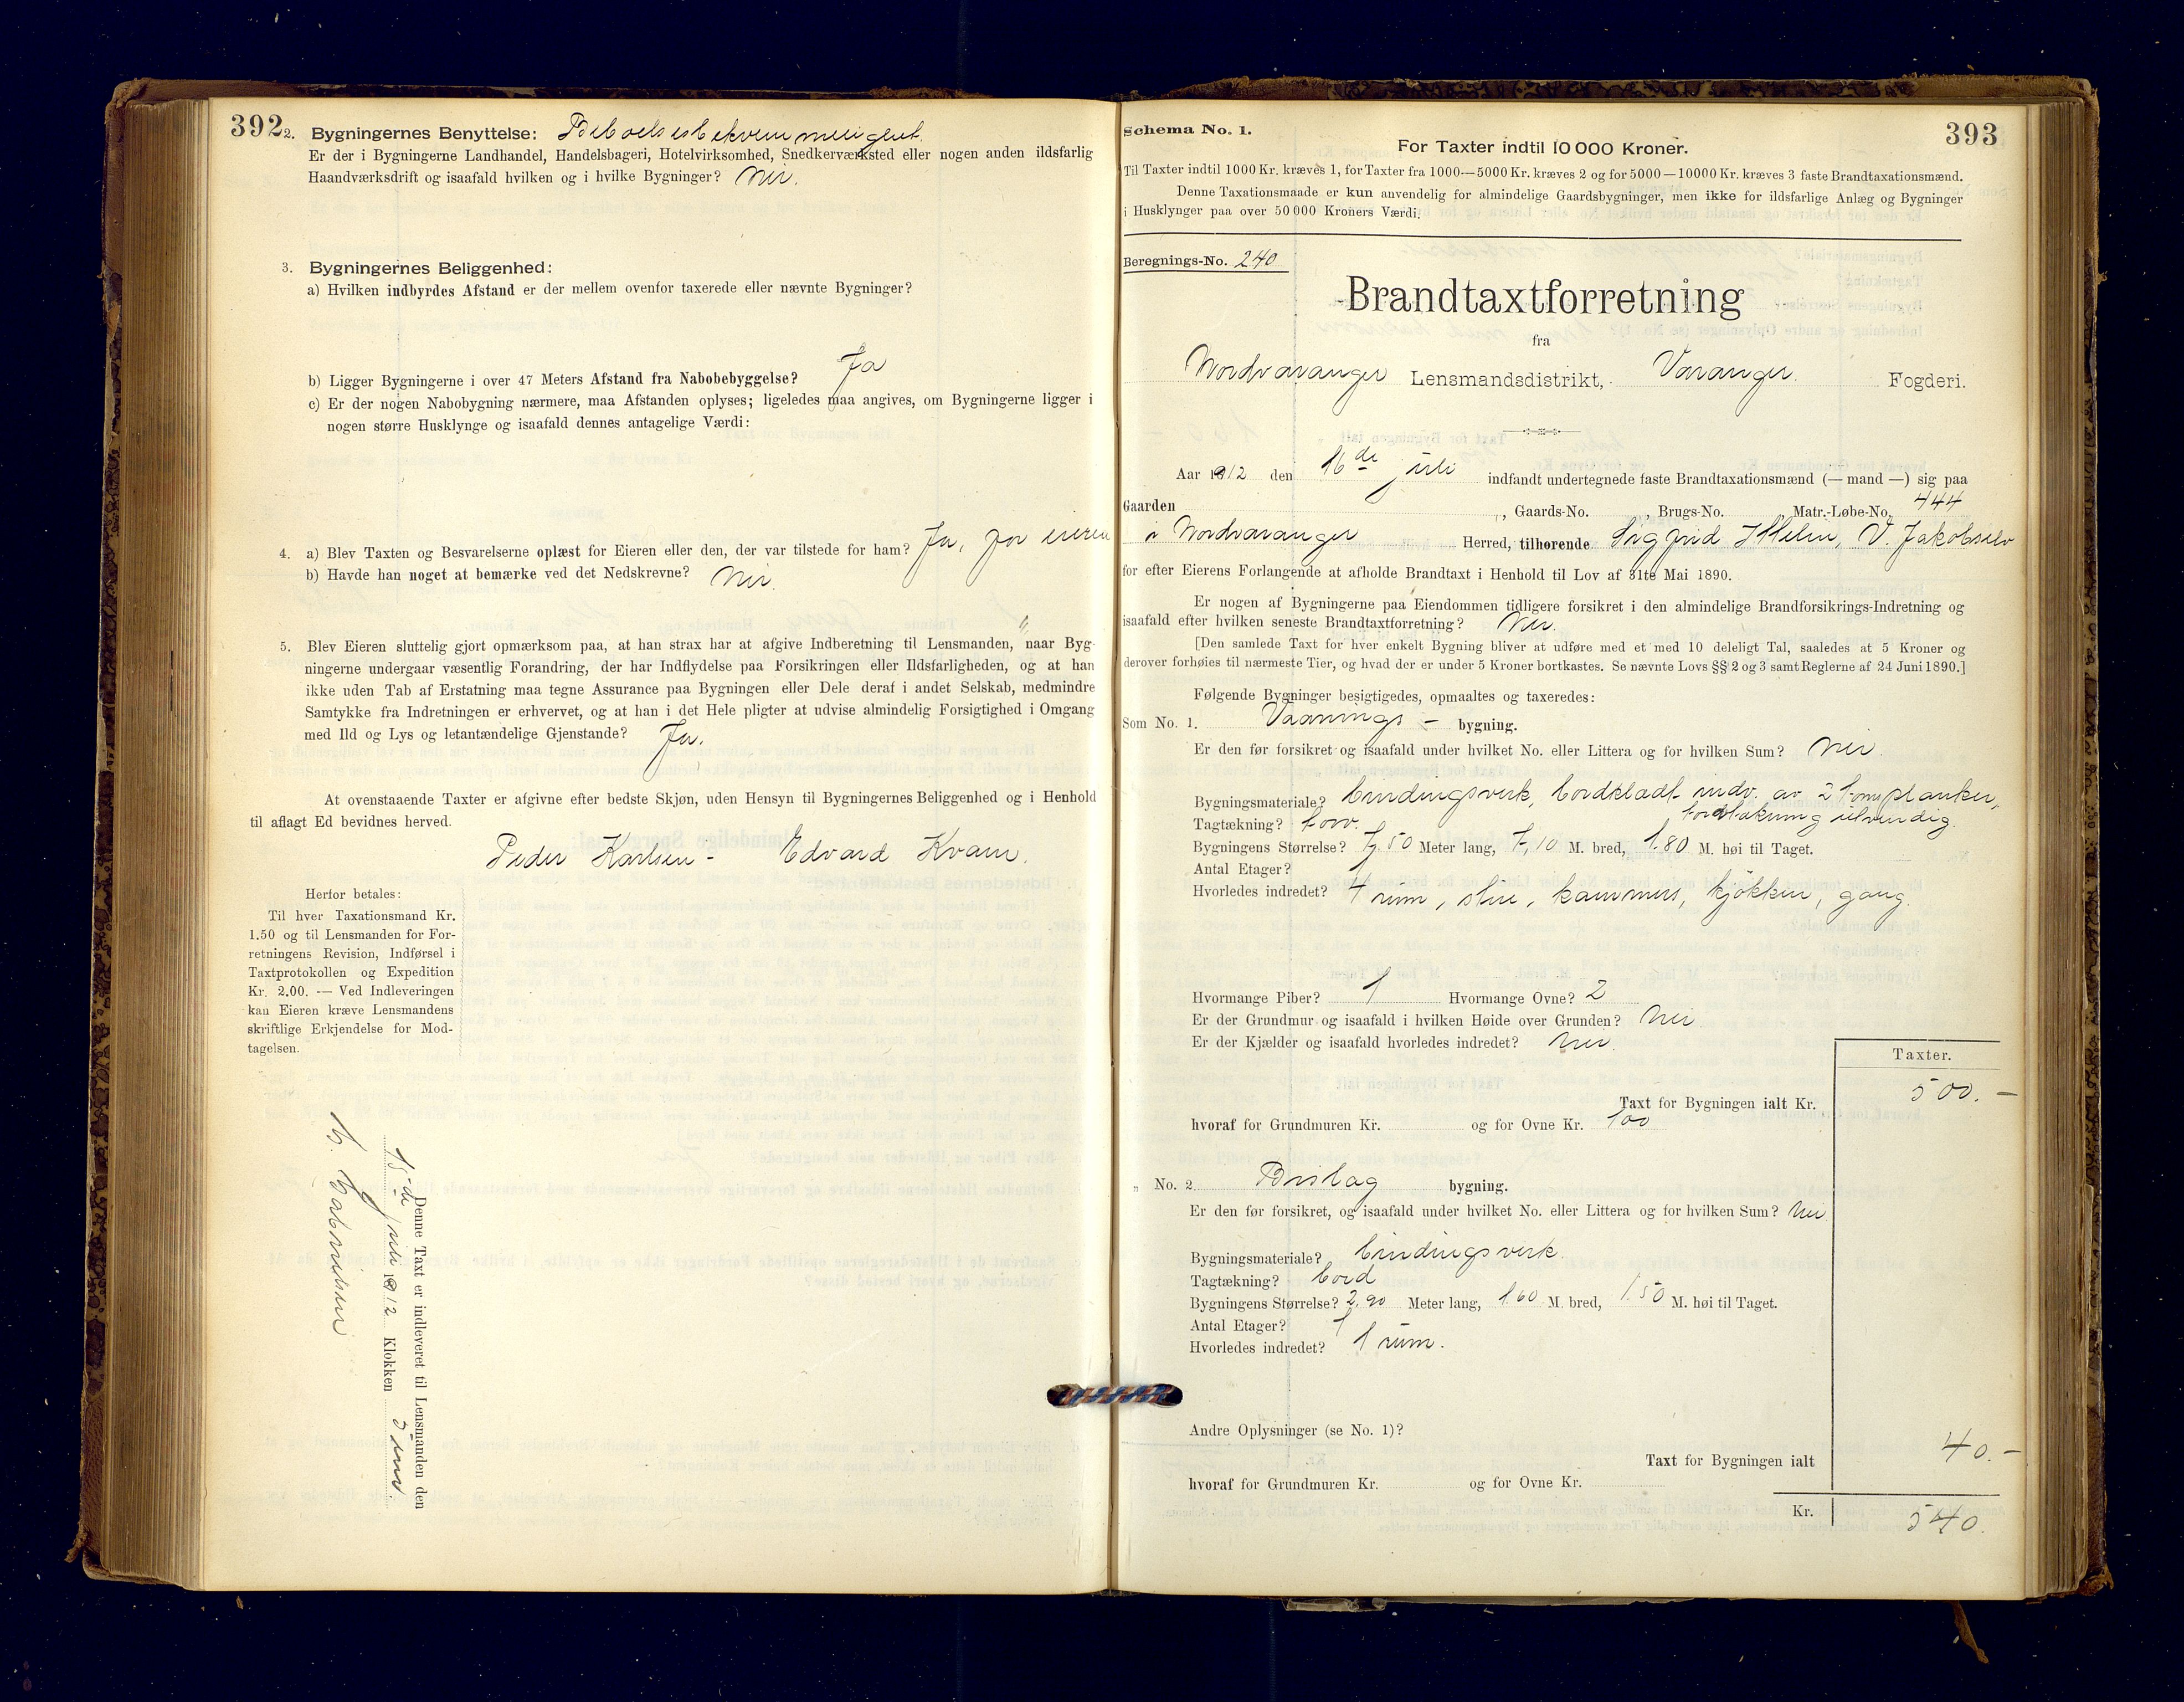 392
2. Bygningernes Benyttelse: Beboelsesbekvemmeligheit.
Er der i Bygningerne Landhandel, Handelsbageri, Hotelvirksomhed, Snedkerværksted eller nogen anden ildsfarlig
Haandværksdrift og isaafald hvilken og i hvilke Bygninger? Nei.
3. Bygningernes Beliggenhed:
a) Hvilken indbyrdes Afstand er der mellem ovenfor taxerede eller nævnte Bygninger?
b) Ligger Bygningerne i over 47 Meters Afstand fra Nabobebyggelse? Ja
c) Er der nogen Nabobygning nærmere, maa Afstanden oplyses; ligeledes maa angives, om Bygningerne ligger i
nogen større Husklynge og isaafald dennes antagelige Værdi:
4. a) Blev Taxten og Besvarelserne oplæst for Eieren eller den, der var tilstede for ham? Ja, for eieren
b) Havde han noget at bemærke ved det Nedskrevne? Nei.
5. Blev Eieren sluttelig gjort opmærksom paa, at han strax har at afgive Indberetning til Lensmanden, naar Byg-
ningerne undergaar væsentlig Forandring, der har Indflydelse paa Forsikringen eller Ildsfarligheden, og at han
ikke uden Tab af Erstatning maa tegne Assurance paa Bygningen eller Dele deraf i andet Selskab, medmindre
Samtykke fra Indretningen er erhvervet, og at han i det Hele pligter at udvise almindelig Forsigtighed i Omgang
med Ild og Lys og letantændelige Gjenstande? Ja.
At ovenstaaende Taxter er afgivne efter bedste Skjøn, uden Hensyn til Bygningernes Beliggenhed og i Henhold
til aflagt Ed bevidnes herved.
Peder Karlsen - Edvard Kvam.
Herfor betales:
Til hver Taxationsmand Kr.
1.50 og til Lensmanden for For-
retningens Revision, Indførsel i
Taxtprotokollen og Expedition
Kr. 2.00. — Ved Indleveringen
kan Eieren kræve Lensmandens
skriftlige Erkjendelse for Mod-
tagelsen.
Denne Taxt er indleveret til Lensmanden den
18de juli 1912 Klokken
Schema No. 1.
393
For Taxter indtil 10 000 Kroner.
Til Taxter indtil 1000 Kr. kræves 1, for Taxter fra 1000—5000 Kr. kræves 2 og for 5000—10000 Kr. kræves 3 faste Brandtaxationsmænd.
Denne Taxationsmaade er kun anvendelig for almindelige Gaardsbygninger, men ikke for ildsfarlige Anlæg og Bygninger
i Husklynger paa over 50 000 Kroners Værdi.
Beregnings-No. 240
Brandtaxtforretning
fra
Nordvaranger Lensmandsdistrikt, Varanger. Fogderi.
Aar 1912 den 16de juli indfandt undertegnede faste Brandtaxationsmænd (— mand —) sig paa
Gaarden , Gaards-No. , Brugs-No. , Matr.-Løbe-No. 444
i Nordvaranger Herred, tilhørende Sigfrid Helin, V. Jakobselv
for efter Eierens Forlangende at afholde Brandtaxt i Henhold til Lov af 31te Mai 1890.
Er nogen af Bygningerne paa Eiendommen tidligere forsikret i den almindelige Brandforsikrings-Indretning og
isaafald efter hvilken seneste Brandtaxtforretning? Nei.
[Den samlede Taxt for hver enkelt Bygning bliver at udføre med et med 10 deleligt Tal, saaledes at 5 Kroner og
derover forhøies til nærmeste Tier, og hvad der er under 5 Kroner bortkastes. Se nævnte Lovs §§ 2 og 3 samt Reglerne af 24 Juni 1890.]
Følgende Bygninger besigtigedes, opmaaltes og taxeredes:
Som No. 1. Vaanings - bygning.
Er den før forsikret og isaafald under hvilket No. eller Littera og for hvilken Sum? Nei.
Bygningsmateriale? bindingsverk, bordklædt indv. av 2 toms planker,
bordtækning utvendig.
Tagtækning? torv.
Bygningens Størrelse? 7,50 Meter lang, 7,10 M. bred, 1.80 M. høi til Taget.
Antal Etager? 1
Hvorledes indredet? 4 rum, stue, kammers, kjøkken, gang.
Hvormange Piber? 1 Hvormange Ovne? 2
Er der Grundmur og isaafald i hvilken Høide over Grunden? Nei
Er der Kjælder og isaafald hvorledes indredet? Nei.
Taxter.
Taxt for Bygningen ialt Kr. 500.—
hvoraf for Grundmuren Kr. og for Ovne Kr. 100
„ No. 2. Bislag bygning.
Er den før forsikret, og isaafald under hvilket No. eller Littera og for hvilken Sum? Nei
Bygningsmateriale? bindingsverk.
Tagtækning? bord
Bygningens Størrelse? 2.90 Meter lang, 1.60 M. bred, 1.50 M. høi til Taget.
Antal Etager? 1
Hvorledes indredet? 1 rum.
Andre Oplysninger (se No. 1)?
Taxt for Bygningen ialt 40.—
hvoraf for Grundmuren Kr. og for Ovne Kr.
Kr. 540.